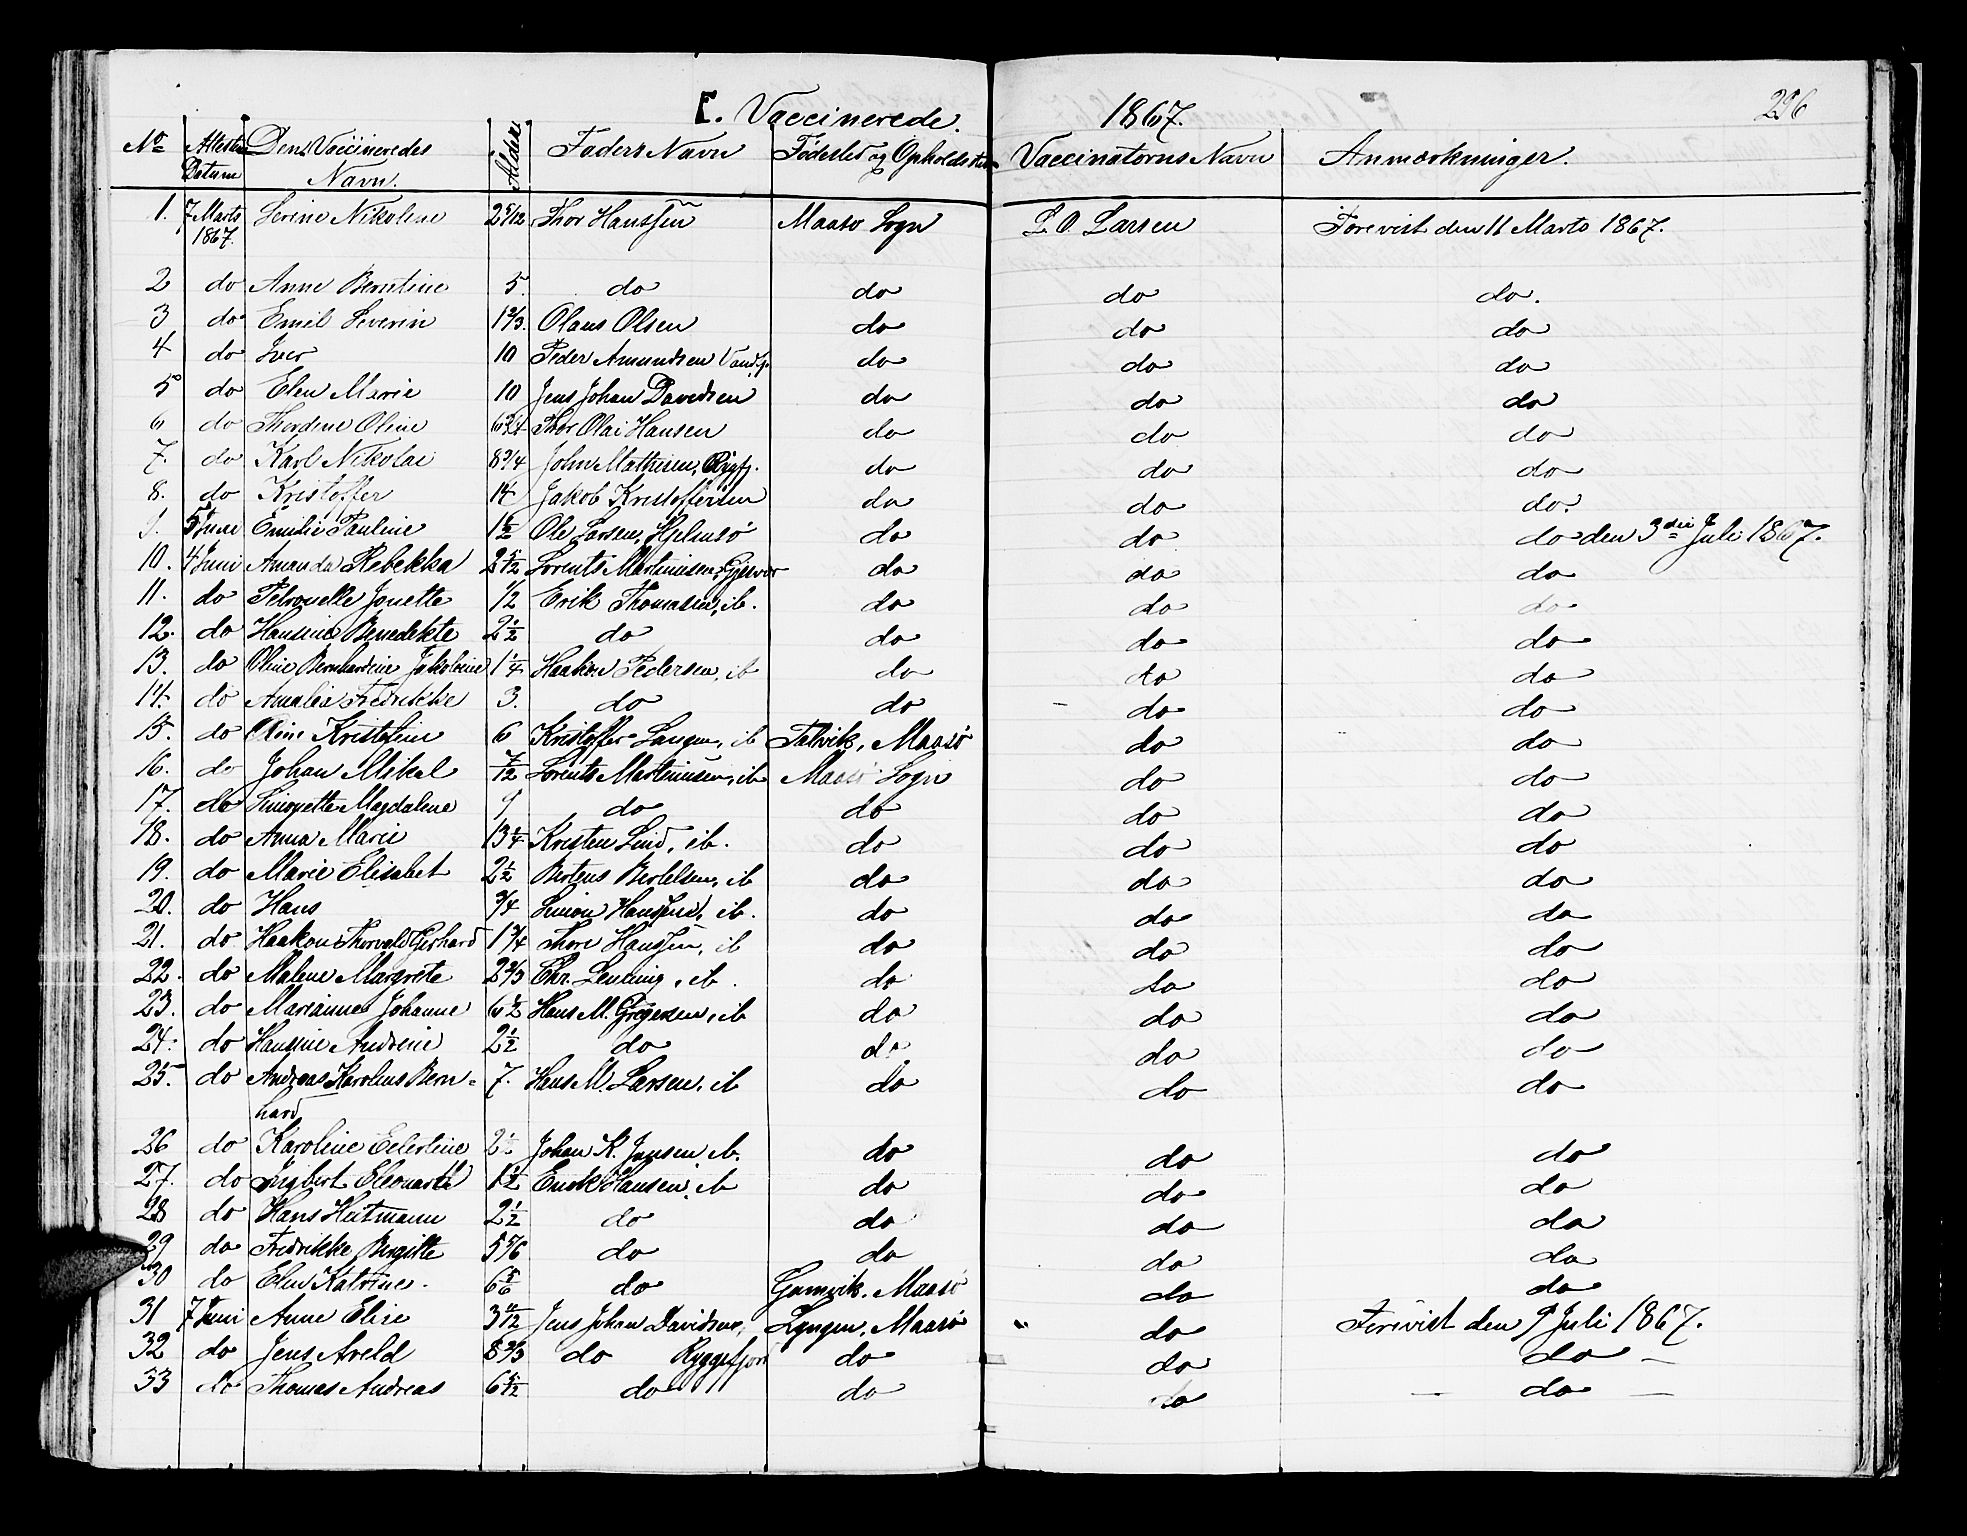 296
E. Vaccinerede. 1867.
No Attestens Datum Dens Vaccineredes Navn. Alder Faders Navn Fødested og Opholdssted Vaccinatorens Navn Anmærkninger.
1. 7 Marts 1867. Serine Nikoline 2 5/12 Thor Hanssen Maasø Sogn L. O. Larsen Forevist den 11 Marts 1867.
2 do Anne Berntine 5. do do do do.
3 do Emil Severin 1 2/3 Olaus Olsen do do do
4 do Iver 10 Peder Amundsen do do do
5 do Elen Marie 10 Jens Johan Davidsen do do do
6 do Thordine Oline 6 3/4 Thor Olai Hansen do do do
7. do Karl Nikolai 8 3/4 John Mathisen, Rygfj. do do do
8. do Kristoffer 14 Jakob Kristoffersen do do do.
9. 5 Juni Emilie Pauline 1 1/2 Ole Larsen, Hjelmsø do do do den 3die Juli 1867.
10. 4 Juni Amanda Rebekka 2 5/12 Lorents Martinusen, Gjesvær do do do
11. do Petronelle Jonette 1/2 Erik Thomasen, ib. do do do
12. do Hansine Benedikte 2 1/2 do do do do
13. do Oline Bernhardine Jakobine 1 1/4 Haakon Pedersen, ib do do do
14. do Amalia Fredrikke 3. do do do do
15. do Oline Kristine 6 Kristoffer Langen, ib Talvik, Maasø do do
16. do Johan Mikal 7/12 Lorents Martinusen, ib Maasø Sogn do do
17. do Simonette Magdalene 9 do do do do
18. do Anna Marie 13 1/4 Kristen Lind, ib. do do do
19. do Marie Elisabet 2 1/2 Berteus Bertelsen, ib do do do
20. do Hans 3/4 Simon Hanssen, ib. do do do
21. do Haakon Thorvald Gerhard 1 3/4 Thore Hanssen, ib do do do
22. do Malene Margrete 2 2/3 Chr. Lenning, ib. do do do
23. do Marianne Johanne 6 1/2 Hans M. Gregersen, ib do do do
24. do Hansine Andrine 2 1/2 do do do do
25. do Andreas Karolius Bern- 7. Hans M. Larsen, ib do do do
hard
26 do Karoline Edertine 2 1/2 Johan K. Jansen ib. do do do
27. do Sigbert Eleonarth 1 1/2 Enok Hansen, ib do do do
28 do Hans Hertmann 2 1/2 do do do do
29 do Fredrikke Birgitte 5 5/6 do do do do
30 do Elen Katrine. 6 5/6 do Gamvik, Maasø do do
31 7 Juni Anne Elise 3 11/12 Jens Johan Davidsen, Lyngen, Maasø " do Forevist den 9 Juli 1867.
32 do Jens Aveld 8 2/3 do Ryggefjord do do do —
33 do Thomas Andreas 6 5/12 do do do — do —